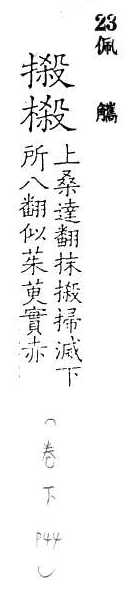 23 佩觿
摋 榝
上桑達翻抹摋掃滅下
所八翻似茱萸實赤
(卷下 P44)